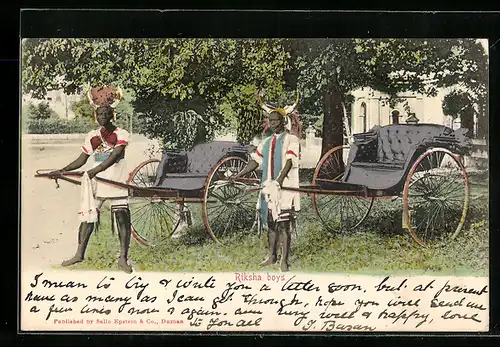 Riksha boys
I mean to try & write you a letter soon, but at present
have as many lines now & again, as I can get through, hope you will send me
a few am very well & happy, love
Published by Sallo Epstein & Co., Durban
to you all